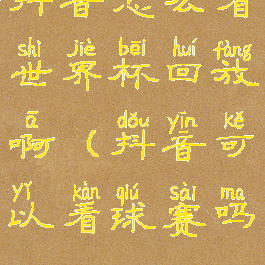 抖音怎么看
shì jiè bēi huí fàng
世界杯回放
ā dǒu yīn kě
啊（抖音可
yǐ kàn qiú sài ma
以看球赛吗